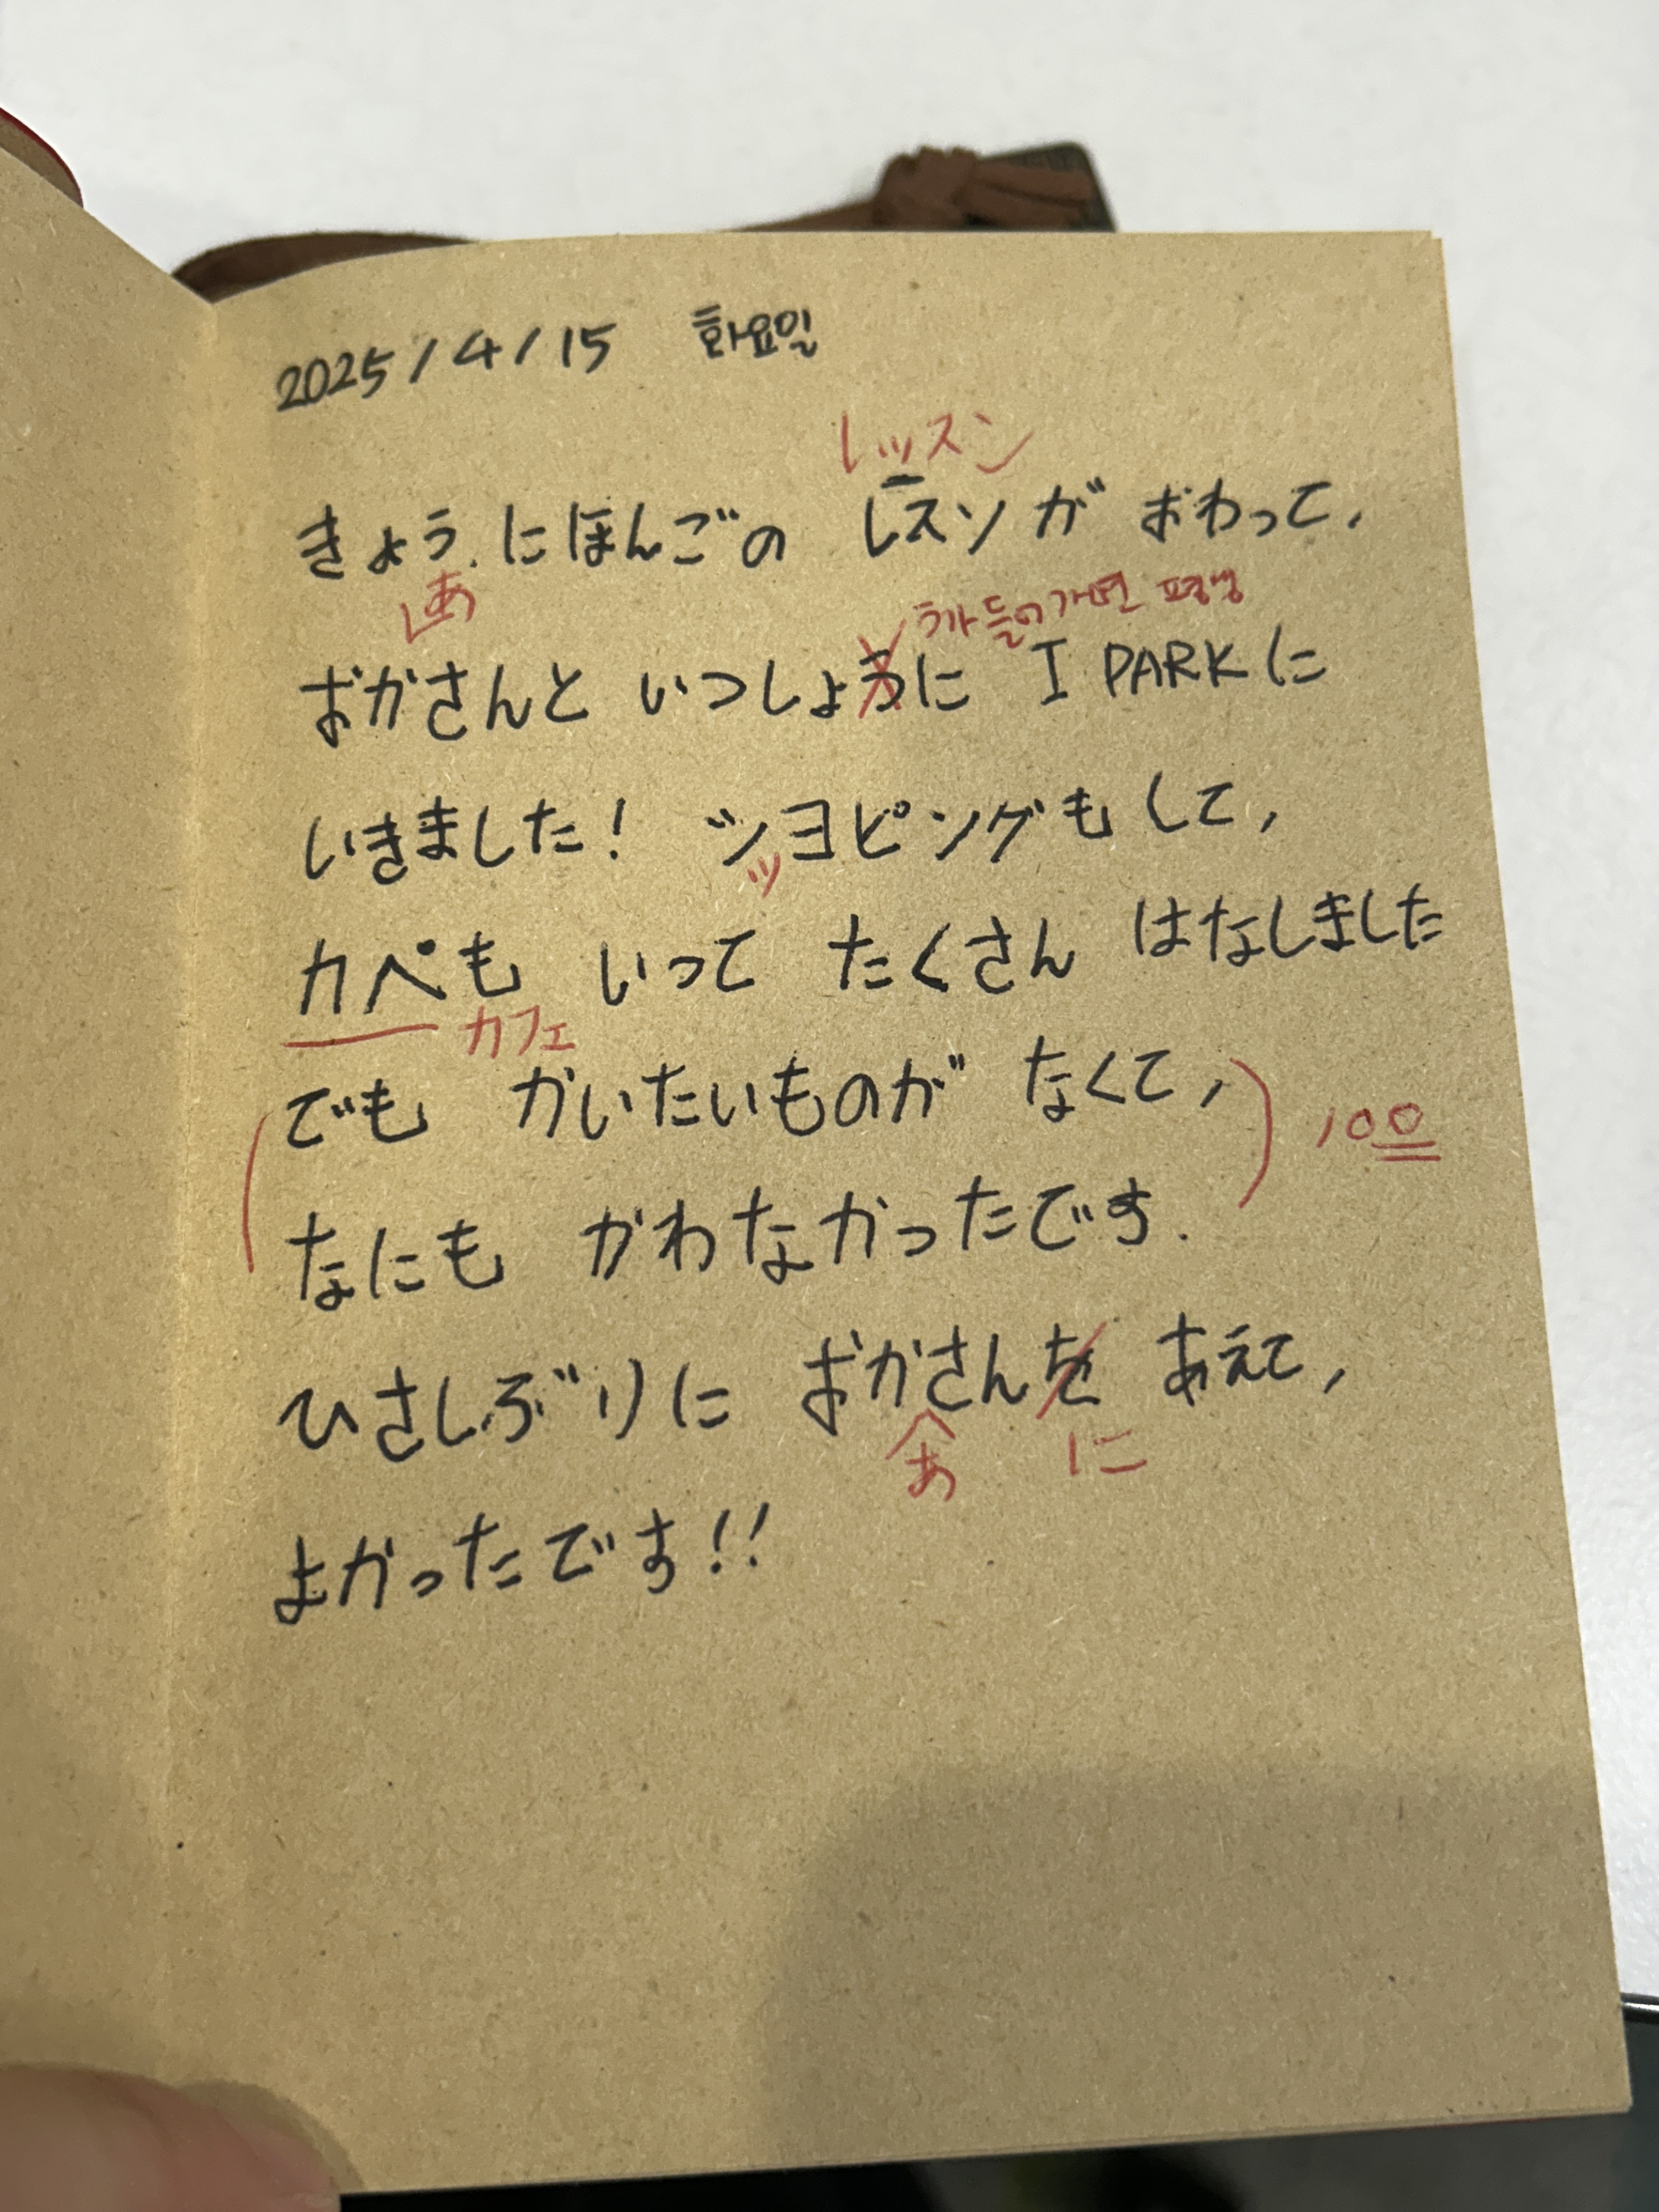 2025/4/15 화요일
レッスン
きょう.にほんごの レスンが おわって,
あ
おかさんと いつしょうに I PARKに
いきました! ツヨピングもして,
ッ
カペも いって たくさん はなしました
カフェ
でも かいたいものが なくて,
100
なにも かわなかったです.
ひさしぶりに おかさんを あえて,
あ に
よかったです!!